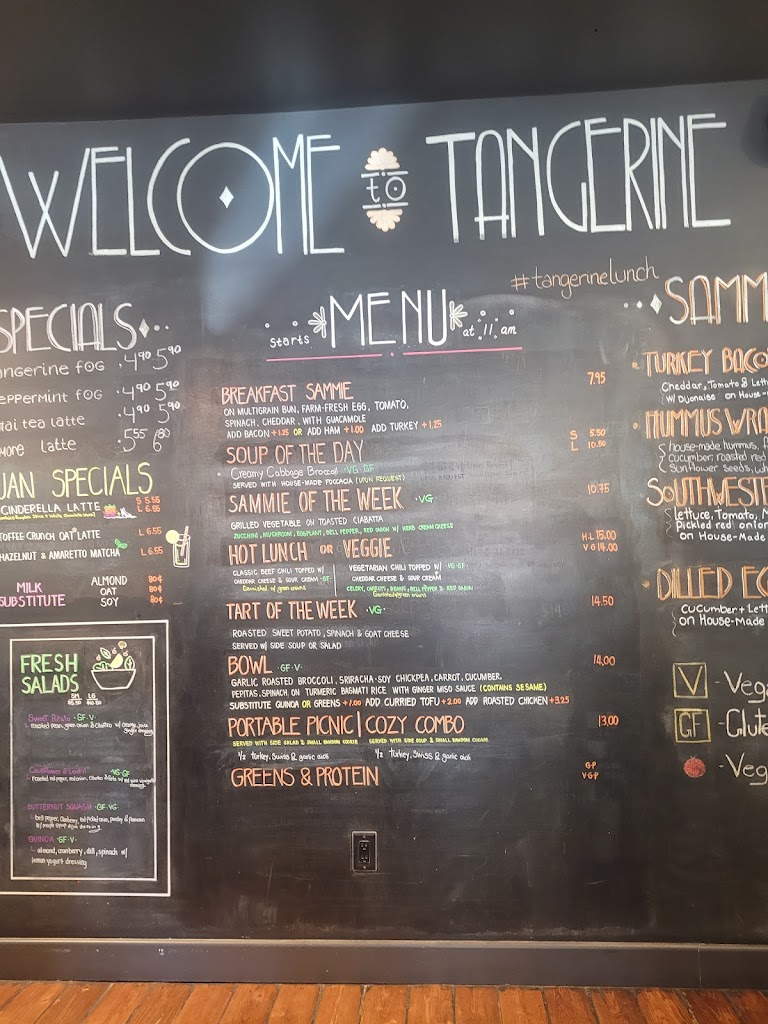 WELCOME to TANGERINE
#tangerinelunch
SPECIALS
angerine FOG 4.90 5.90
eppermint FOG 4.90 5.90
ai tea latte 4.90 5.90
more latte 5.55 6.80
UAN SPECIALS
CINDERELLA LATTE S 5.55
L 6.55
TOFFEE CRUNCH OAT LATTE L 6.55
HAZELNUT & AMARETTO MATCHA L 6.55
MILK SUBSTITUTE
ALMOND 80¢
OAT 80¢
SOY 80¢
FRESH SALADS
SM LG
$5.50 $10.50
Sweet Potato ·GF·V·
VG·GF
BUTTERNUT SQUASH ·GF·VG·
QUINOA ·GF·V·
almond, cranberry, dill, spinach w/
lemon yogurt dressing
Starts MENU at 11 am
BREAKFAST SAMMIE 7.95
ON MULTIGRAIN BUN, FARM-FRESH EGG, TOMATO,
SPINACH, CHEDDAR, WITH GUACAMOLE
ADD BACON +1.25 OR ADD HAM +1.00 ADD TURKEY +1.25
SOUP OF THE DAY S 5.50
L 10.50
Creamy Cabbage Broccoli ·VG·GF
SERVED WITH HOUSE-MADE FOCACCIA (UPON REQUEST)
SAMMIE OF THE WEEK ·VG· 10.75
GRILLED VEGETABLE ON TOASTED CIABATTA
ZUCCHINI, MUSHROOM, EGGPLANT, BELL PEPPER, RED ONION W/ HERB CREAM CHEESE
HOT LUNCH OR VEGGIE H·L 15.00
VG 14.00
CLASSIC BEEF CHILI TOPPED W/
CHEDDAR CHEESE & SOUR CREAM ·GF·
Garnished w/ green onions
VEGETARIAN CHILI TOPPED W/ ·VG·GF·
CHEDDAR CHEESE & SOUR CREAM
CELERY, CARROTS, BEANS, BELL PEPPER & RED ONION
TART OF THE WEEK ·VG· 14.50
ROASTED SWEET POTATO, SPINACH & GOAT CHEESE
SERVED W/ SIDE SOUP OR SALAD
BOWL ·GF·V· 14.00
GARLIC ROASTED BROCCOLI, SRIRACHA-SOY CHICKPEA, CARROT, CUCUMBER,
PEPITAS, SPINACH ON TURMERIC BASMATI RICE WITH GINGER MISO SAUCE (CONTAINS SESAME)
SUBSTITUTE QUINOA OR GREENS +1.00 ADD CURRIED TOFU +2.00 ADD ROASTED CHICKEN +3.25
PORTABLE PICNIC | COZY COMBO 13.00
SERVED WITH SIDE SALAD & SMALL RANDOM COOKIE SERVED WITH SIDE SOUP & SMALL RANDOM COOKIE
½ turkey, swiss & garlic aioli ½ turkey, swiss & garlic aioli
GREENS & PROTEIN GP
VGP
SAMM
TURKEY BACO
Cheddar, Tomato & Lett
w/ Dijonaise on House-M
HUMMUS WRA
house-made hummus,
cucumber, roasted red
sunflower seeds, wh
SOUTHWESTE
lettuce, Tomato,
pickled red onion
on House-Made
DILLED EG
cucumber + Lett
on House-Made
V - Vega
GF - Glute
- Veg